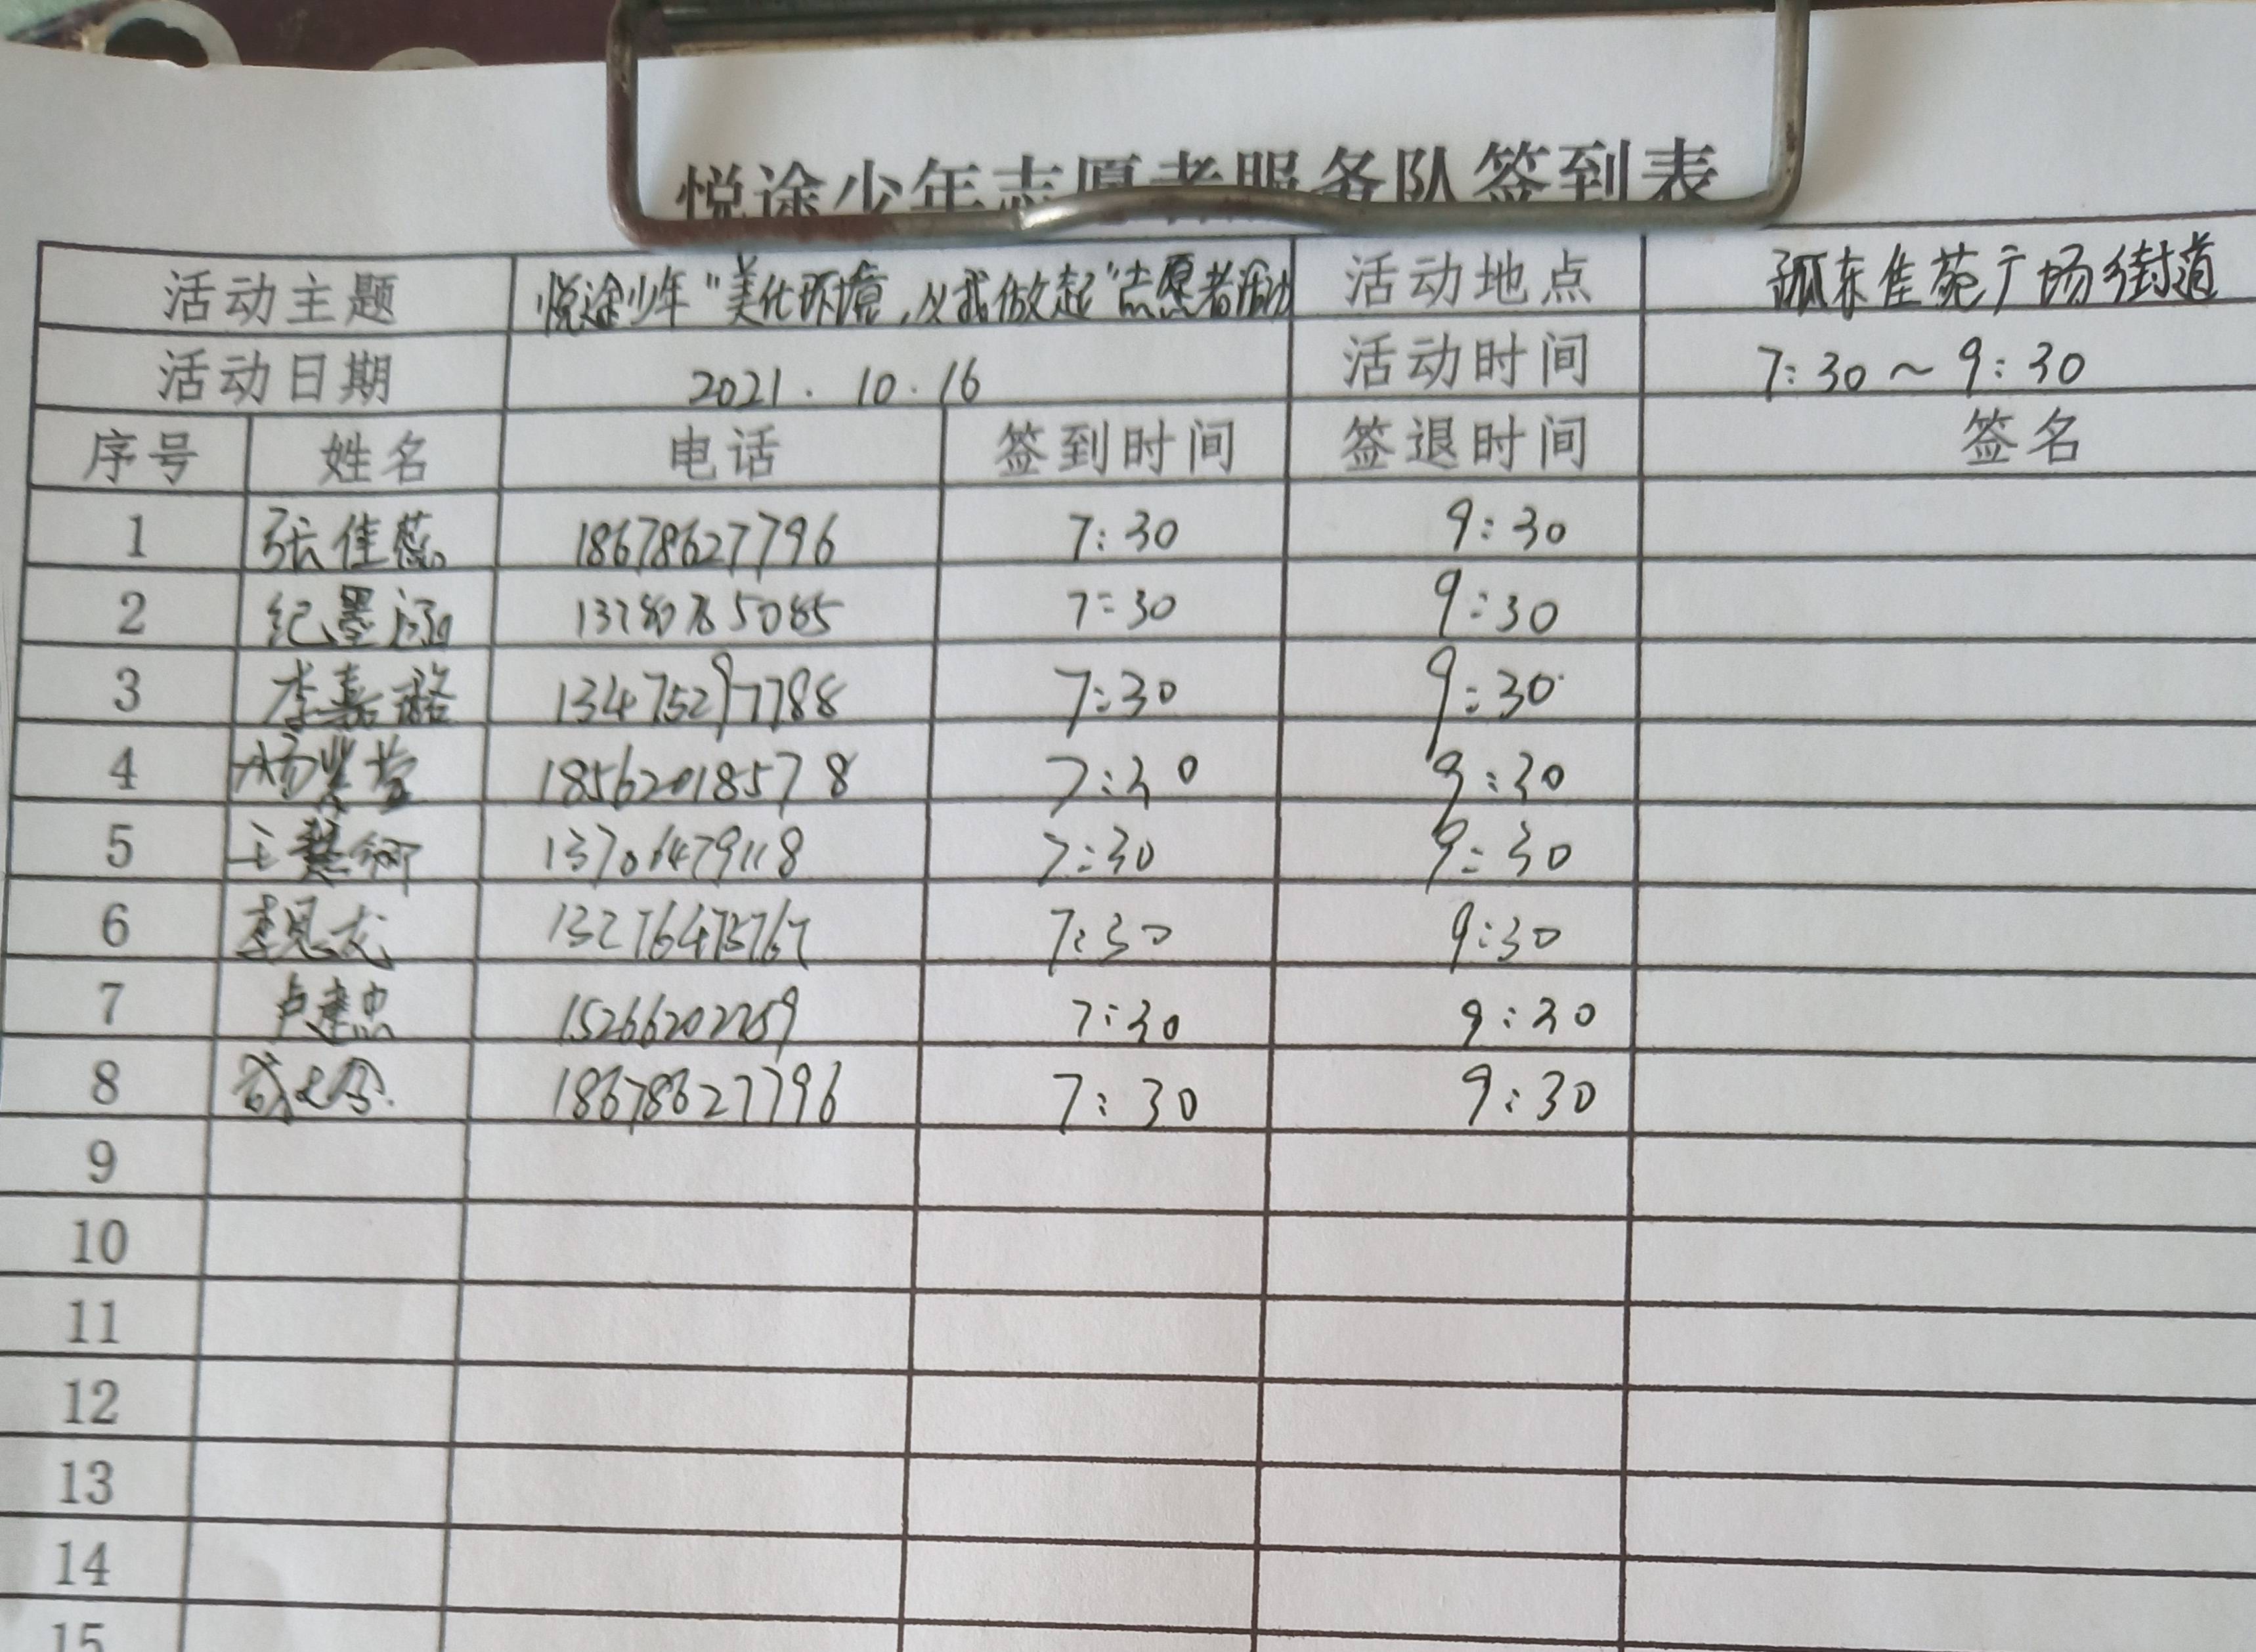 悦途少年志愿者服务队签到表
活动主题 悦途少年"美化环境,从我做起"志愿者活动 活动地点 孤东佳苑广场街道
活动日期 2021.10.16 活动时间 7:30~9:30
序号 姓名 电话 签到时间 签退时间 签名
1 张佳蕊 18678627796 7:30 9:30
2 纪墨涵 7:30 9:30
3 李嘉 13475297788 7:30 9:30
4 杨 18562018578 7:30 9:30
5 王 13706479118 7:30 9:30
6 李恩龙 7:30 9:30
7 卢建忠 15266202259 7:30 9:30
8 18678627796 7:30 9:30
9
10
11
12
13
14
15